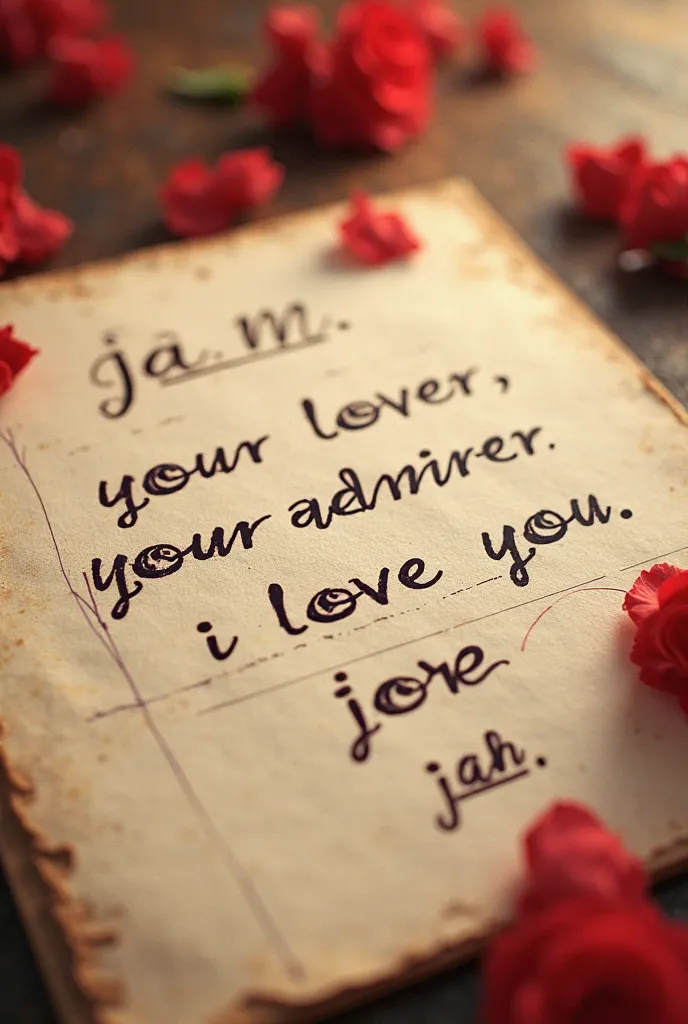 ja. m.
your lover,
your admirer.
i love you.
jore
jah.